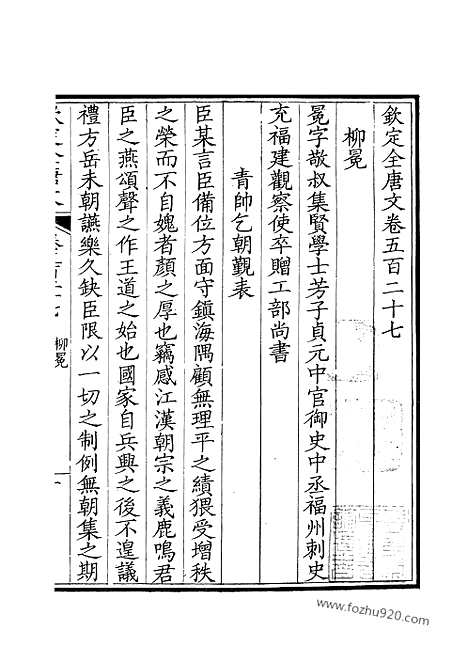 欽定全唐文卷五百二十七
柳冕
冕字敬叔集賢學士芳子貞元中官御史中丞福州刺史
充福建觀察使卒贈工部尚書
青帥乞朝覲表
臣某言臣備位方面守鎮海隅顧無理平之績猥受增秩
之榮而不自媿者顏之厚也竊感江漢朝宗之義鹿鳴君
臣之燕頌聲之作王道之始也國家自兵興之後不遑議
禮方岳未朝讌樂久缺臣限以一切之制例無朝集之期
柳冕
www.fozhu920.com